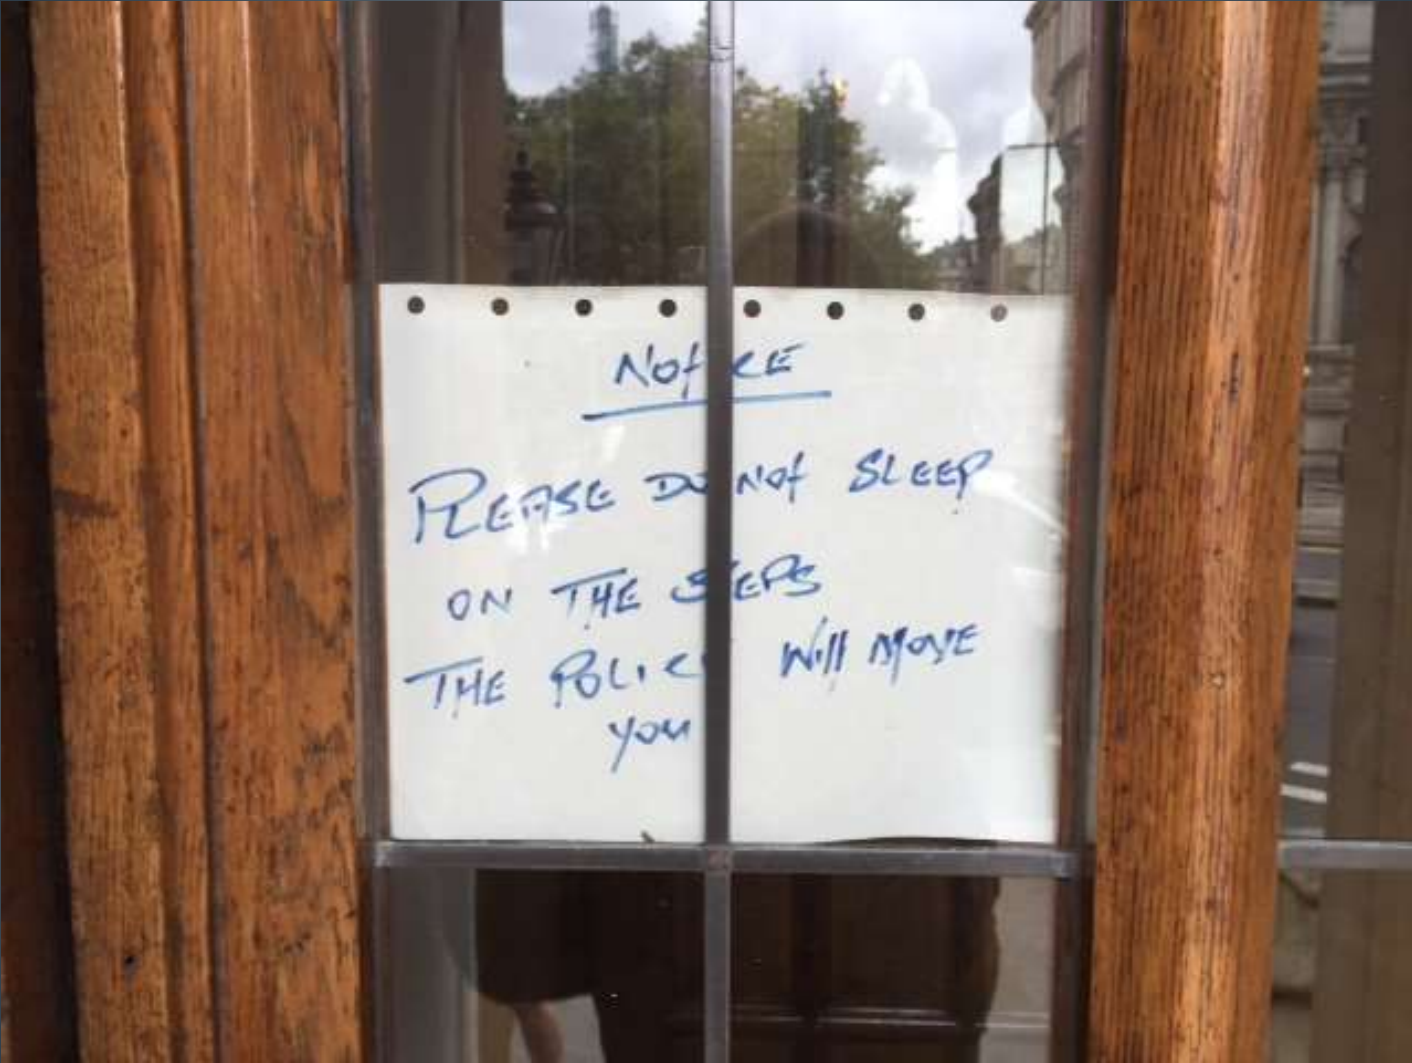 Notice
PLEASE DO NOT SLEEP
ON THE STEPS
THE POLICE Will MOVE
you